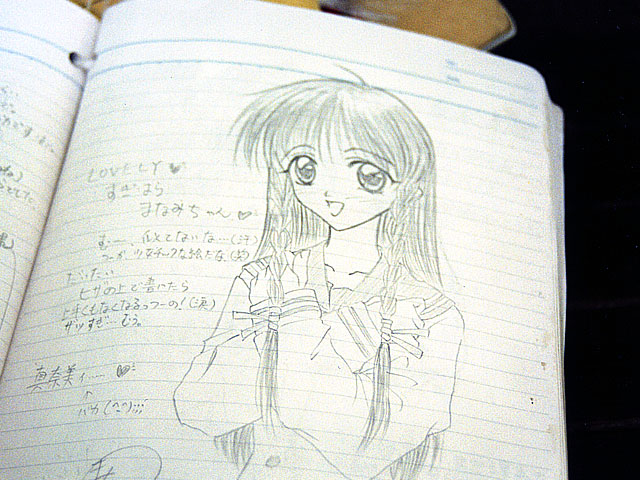 LOVELY♥
すぎはら
まなみちゃん♥
むー、似てないな…(汗)
つーか、少女チックな絵だな。(笑)
だいたい
ヒザの上で書いたら
上手くもなくなるっつーの!(涙)
ザツすぎーむう。
真奈美ィ……♥
↑
バカ(^^;)